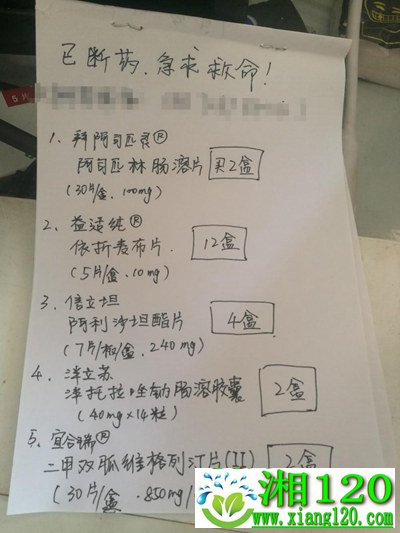 已断药，急求救命！
1、拜阿司匹灵®
阿司匹林肠溶片 买2盒
(30片/盒，100mg)
2、益适纯®
依折麦布片． 12盒
(5片/盒．10mg)
3、信立坦
阿利沙坦酯片 4盒
(7片/相/盒．240mg)
4、泮立苏
泮托拉唑钠肠溶胶囊 2盒
(40mg×14粒)
5、宜合瑞®
二甲双胍维格列汀片(II) 2盒
(30片/盒．850mg/
湘120
www.xiang120.com